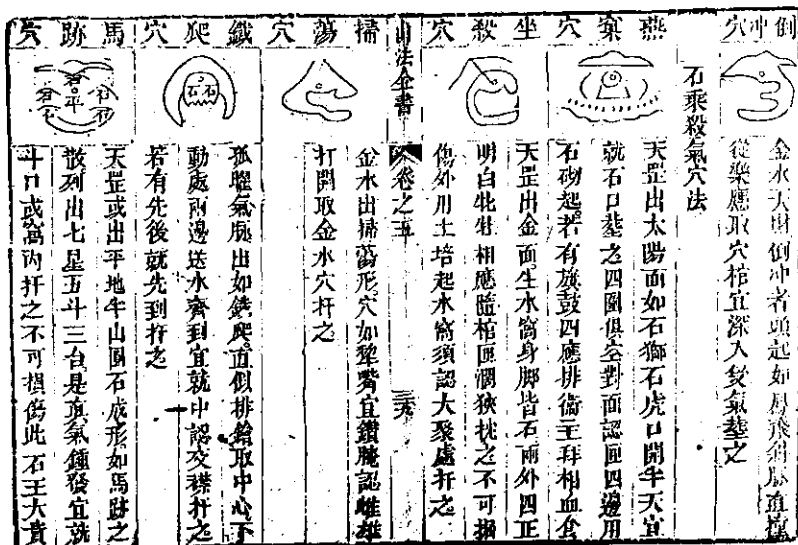 倒冲穴
金水天財倒冲者頭起如鳳飛斜脉直撞
從樂應取穴棺宜深入受氣塟之
石乘殺氣穴法
燕窠穴
天罡出太陽面如石獅石虎口開半天宜
就石口塟之四圍俱空對面認匣四邊用
石砌起若有旗鼓四應排衙王拜相血食
坐殺穴
天罡出金面生水窩身脚皆石兩外四正
明白牝牡相應隨棺匣濶狹扦之不可損
傷外用土培起水窩須認大聚處扦之
山法全書
卷之五
三六
掃蕩穴
金水出掃蕩形穴如犂嘴宜鑽腌認雌雄
打開取金水穴扦之
鐵爬穴
孤曜氣脉出如鐵爬直似排鎗取中心下
動處兩邊送水齊到宜就中認交襟扦之
若有先後就先到扦之
馬跡穴
石
石
石
平
石石
天罡或出平地半山圓石成形如馬跡之
散列出七星五斗三台是眞氣鍾發宜就
斗口或窩內扦之不可損傷此石王大貴